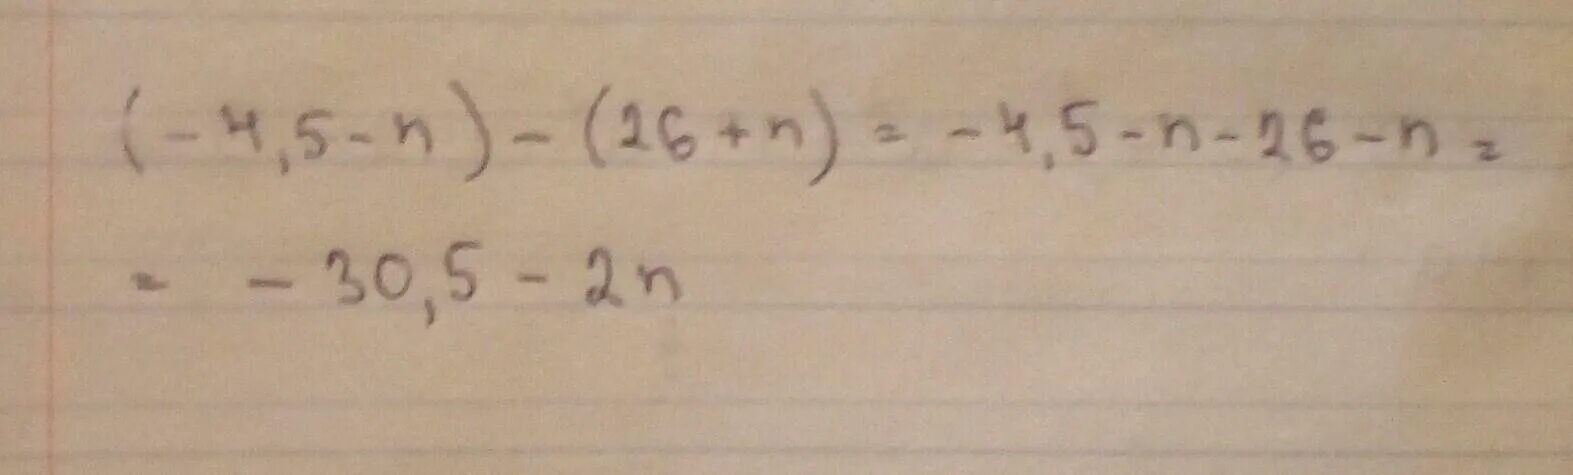 (-4,5-n)-(26+n)=-4,5-n-26-n=
= -30,5-2n